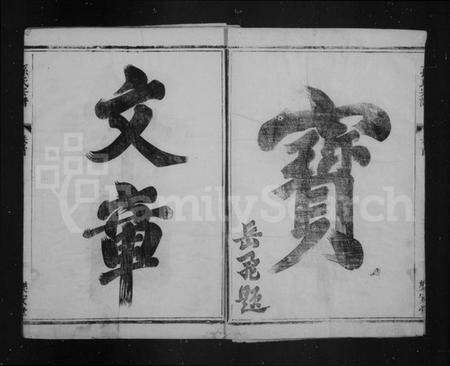 寶
岳飛題
文章
FamilySearch